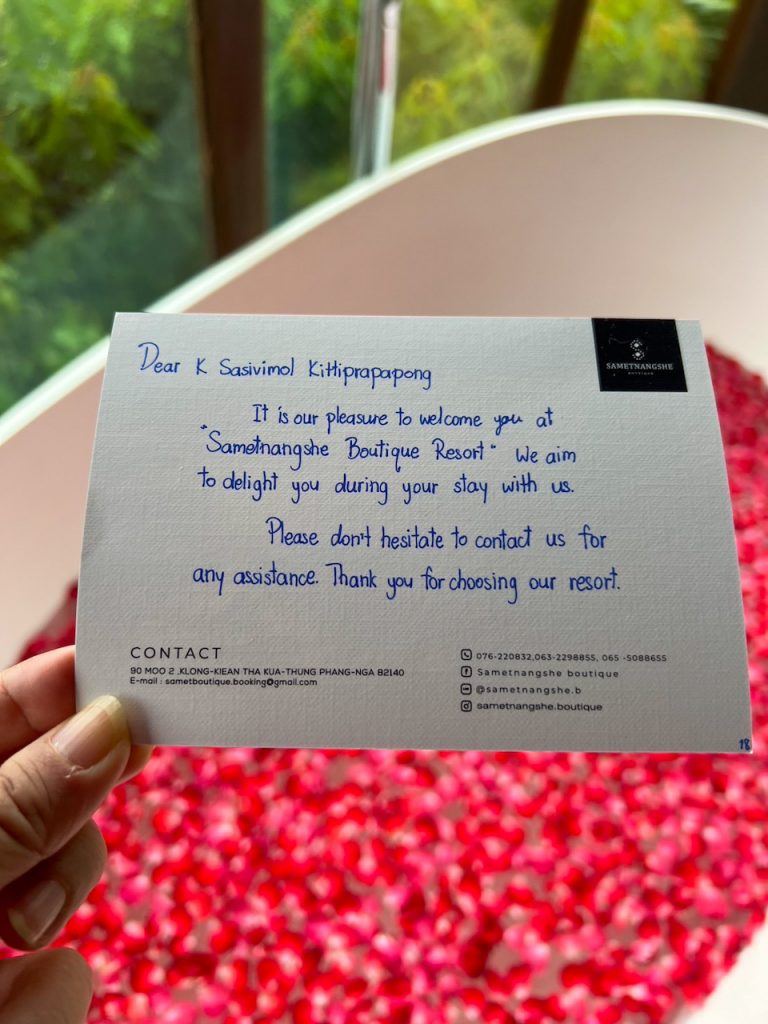 SAMETNANGSHE
BOUTIQUE
Dear K Sasivimol Kittiprapapong
It is our pleasure to welcome you at
"Sametnangshe Boutique Resort" We aim
to delight you during your stay with us.
Please don't hesitate to contact us for
any assistance. Thank you for choosing our resort.
CONTACT
90 MOO 2 ,KLONG-KIEAN THA KUA-THUNG PHANG-NGA 82140
E-mail : sametboutique.booking@gmail.com
076-220832,063-2298855, 065 -5088655
Sametnangshe boutique
@sametnangshe.b
sametnangshe.boutique
18